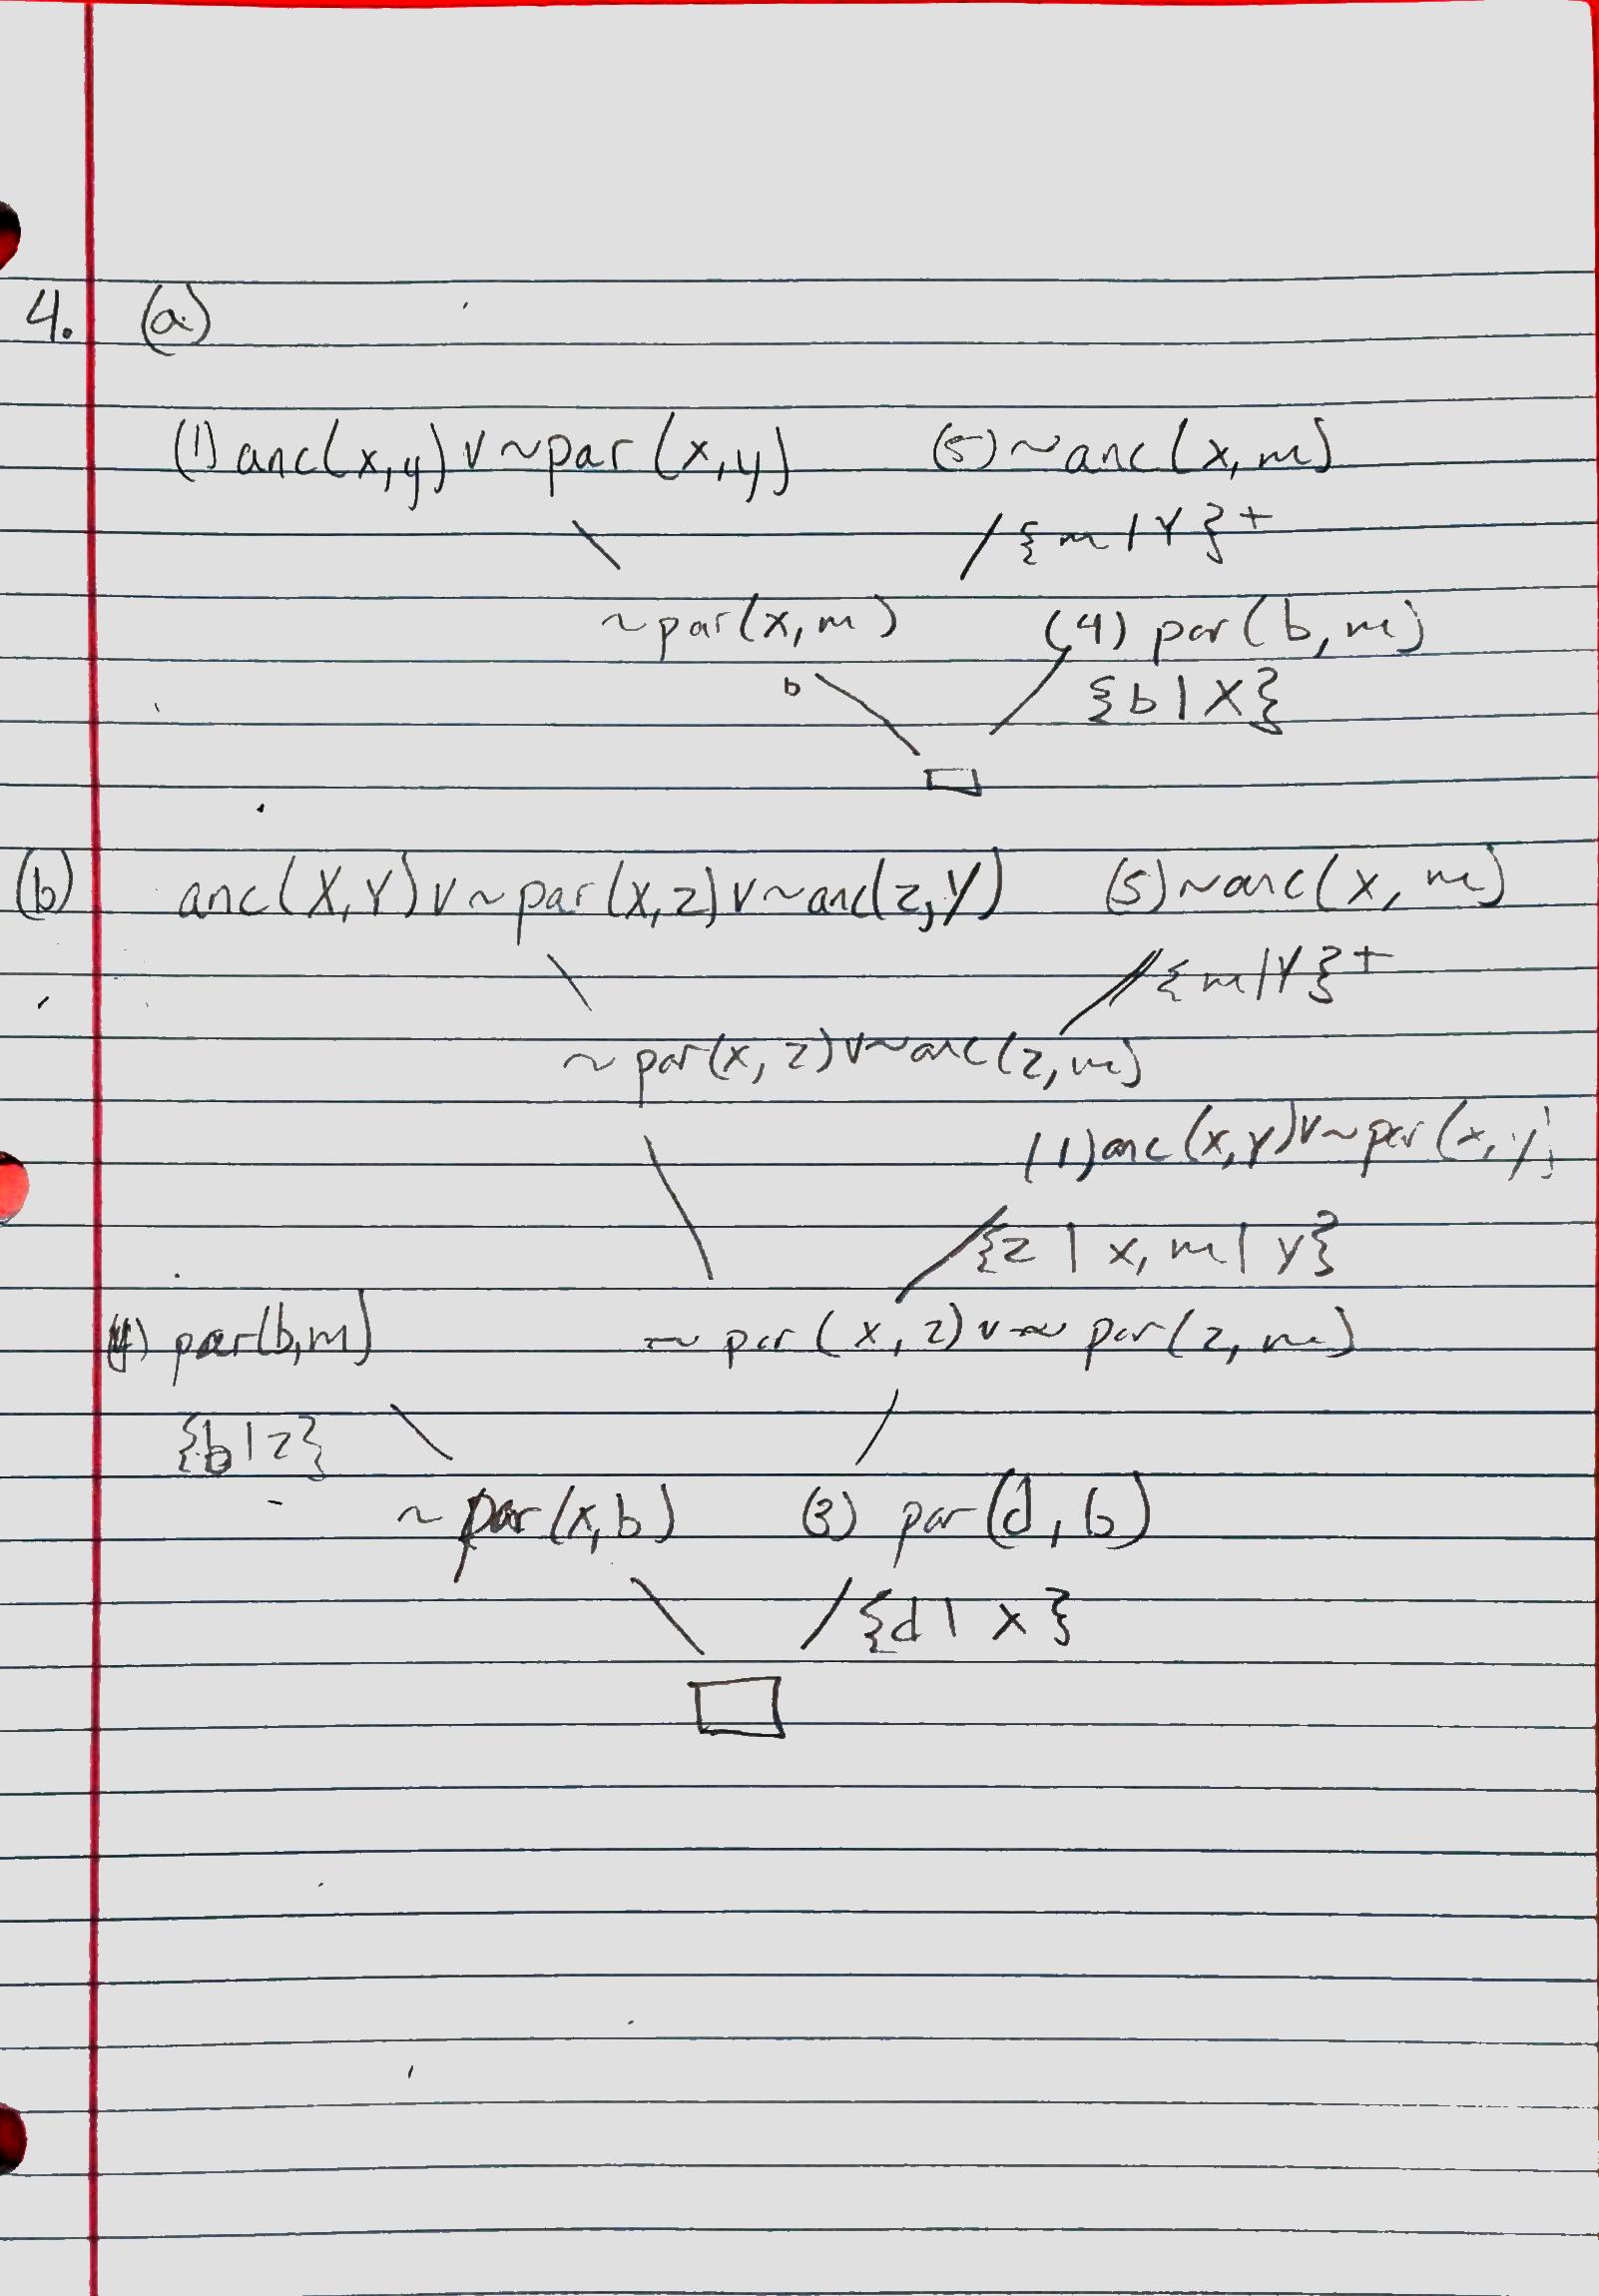 4. (a)
(1) anc(x,y) v ~par(x,y) (5) ~anc(x,m)
{m/Y}+
~par(x,m) (4) par(b,m)
b {b|X}
(b) anc(X,Y) v ~par(x,z) v ~anc(z,Y) (5) ~anc(x,m)
{m/Y}+
~par(x,z) v ~anc(z,m)
(1) anc(x,y) v ~par(x,y)
{z|x, m|y}
(4) par(b,m) ~par(x,z) v ~par(z,m)
{b|z}
~par(x,b) (3) par(d,b)
{d|x}